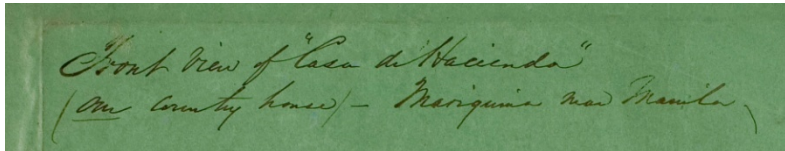 Front View of "Casa de Hacienda"
(our country house) – Mariquina near Manila